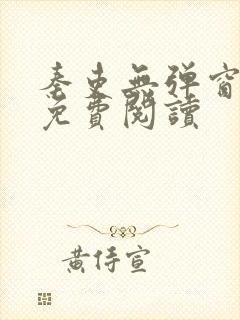 秦吏無弹窗
免費閱讀
黃侍宣